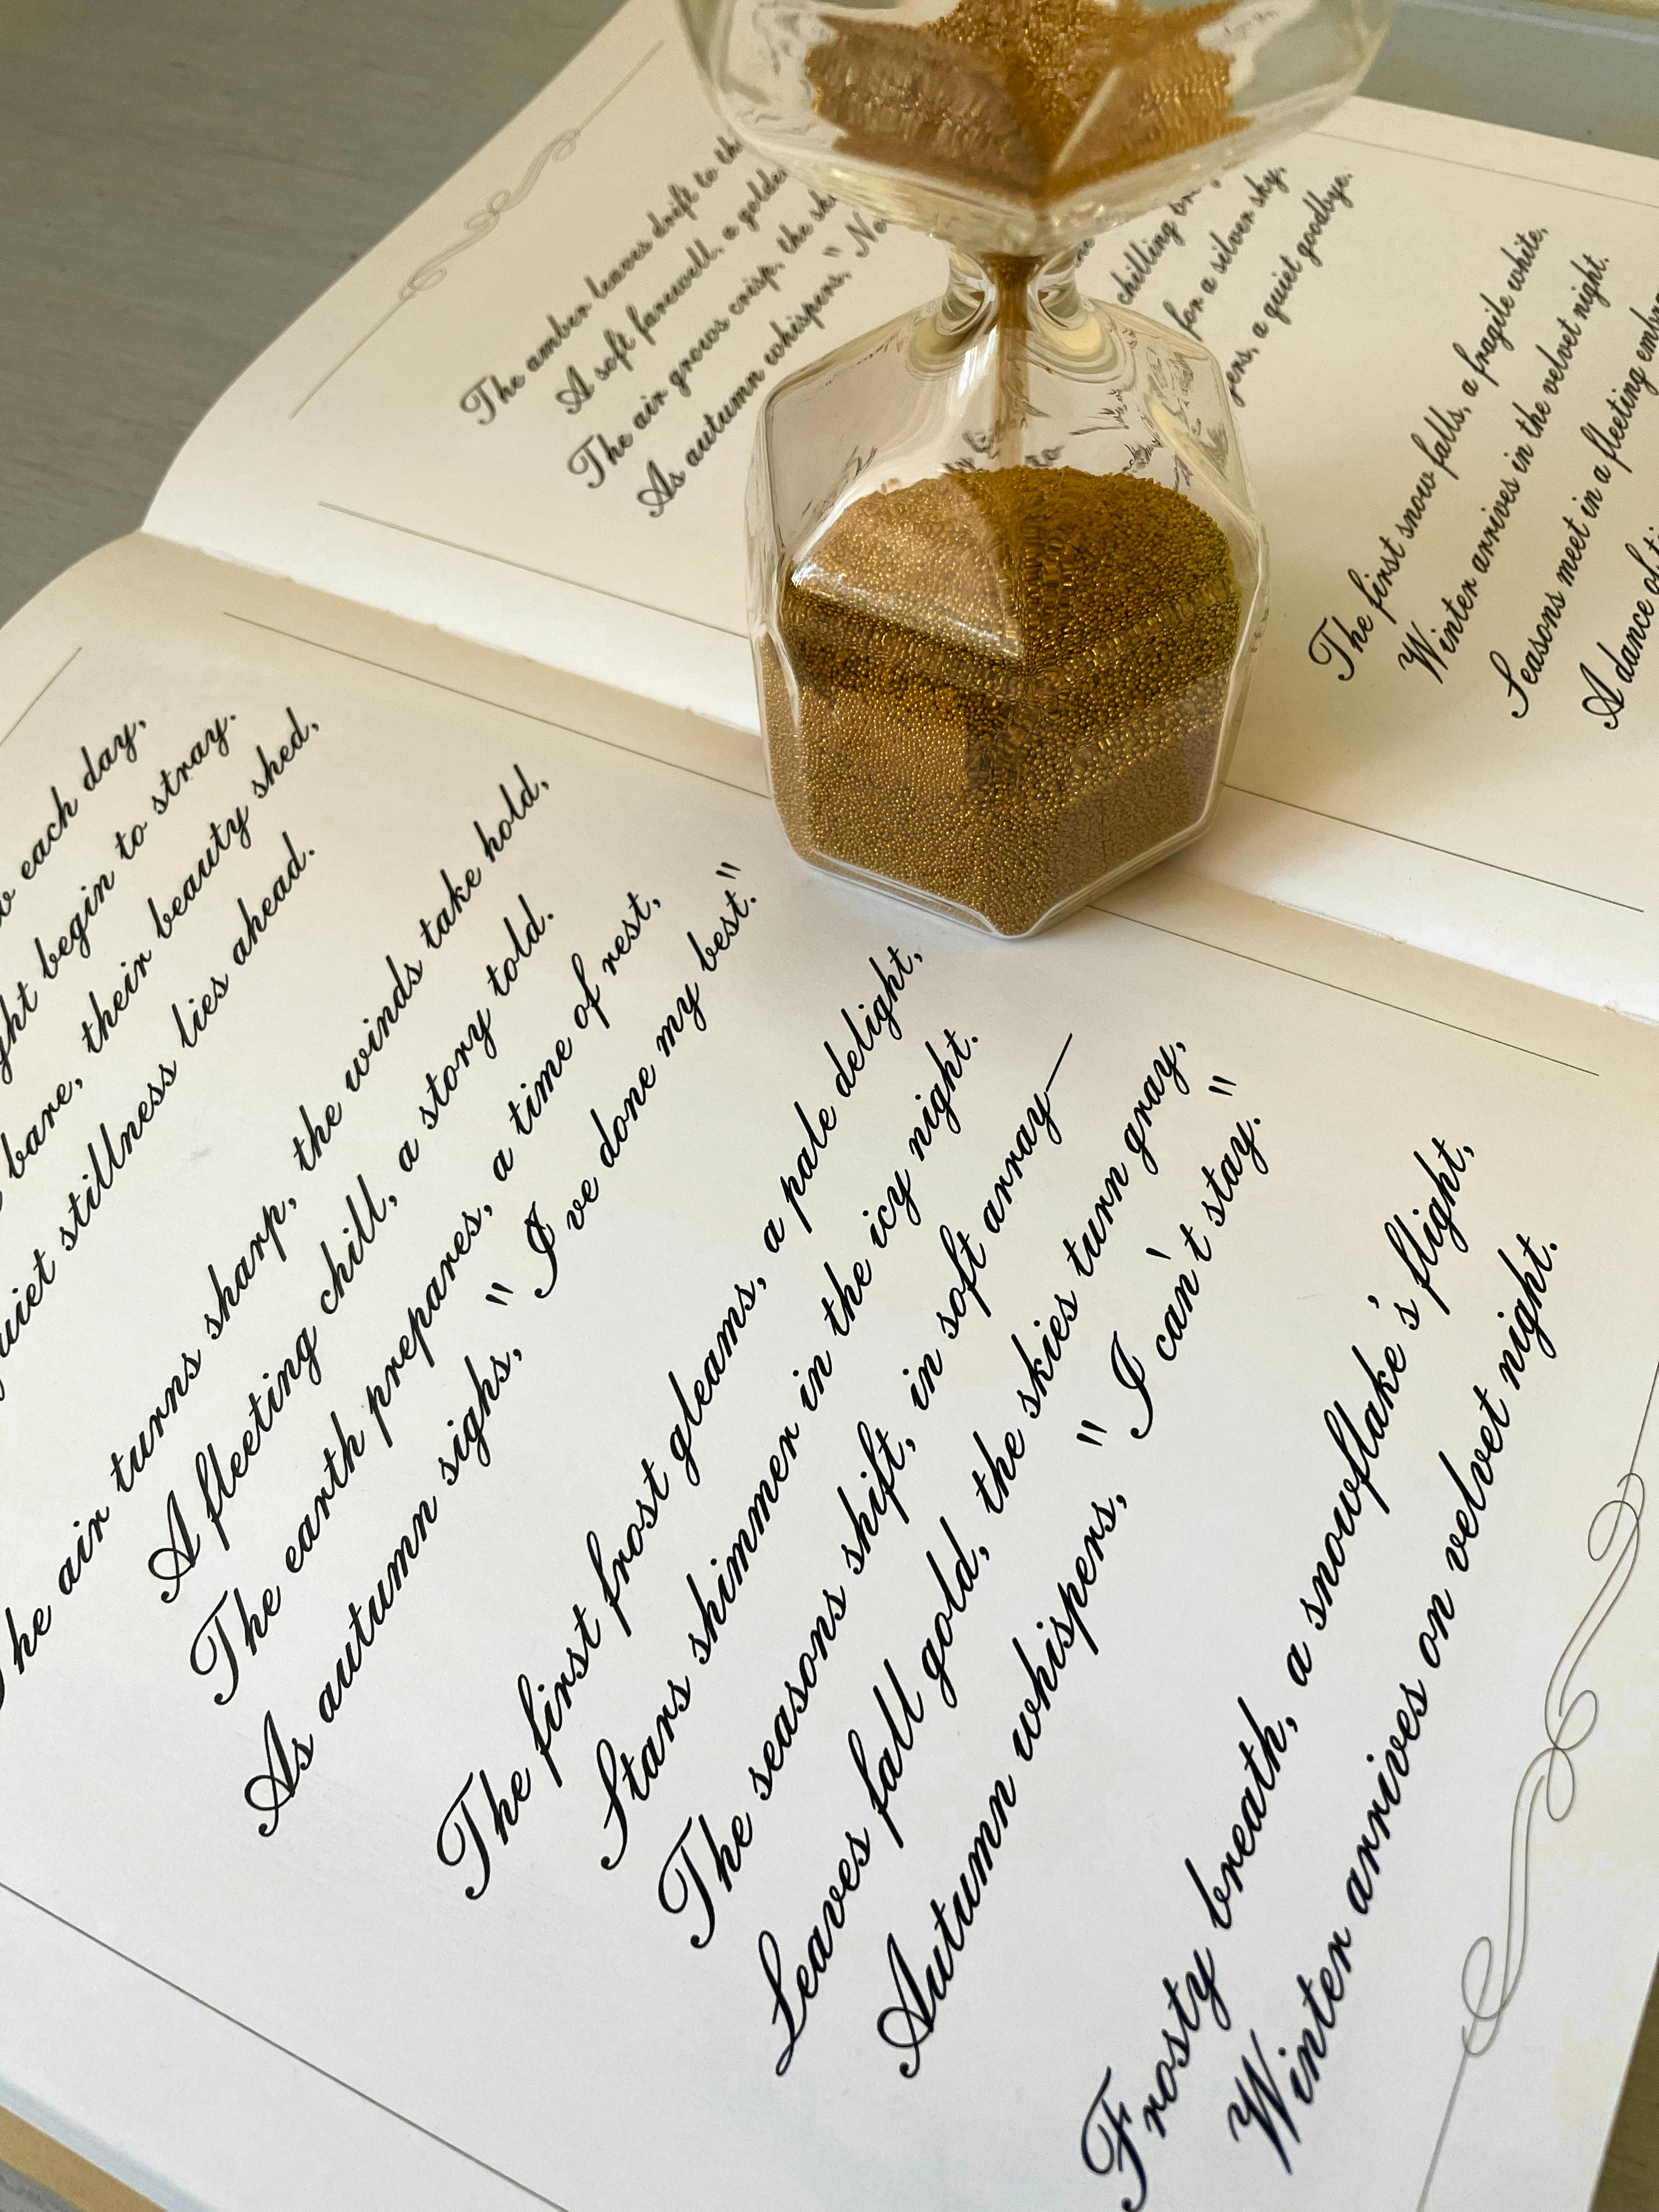 The amber leaves drift to
A soft farewell, a
The air grows crisp, the
As autumn whispers, "
chilling
for a silver sky.
a quiet goodbye.
The first snow falls, a fragile white,
Winter arrives in the velvet night.
Seasons meet in a fleeting
A dance of
each day,
begin to stray.
bare, their beauty shed,
stillness lies ahead.
The air turns sharp, the winds take hold,
A fleeting chill, a story told.
The earth prepares, a time of rest,
As autumn sighs, "I've done my best."
The first frost gleams, a pale delight,
Stars shimmer in the icy night.
The seasons shift, in soft array—
Leaves fall gold, the skies turn gray,
Autumn whispers, "I can't stay."
Frosty breath, a snowflake's flight,
Winter arrives on velvet night.